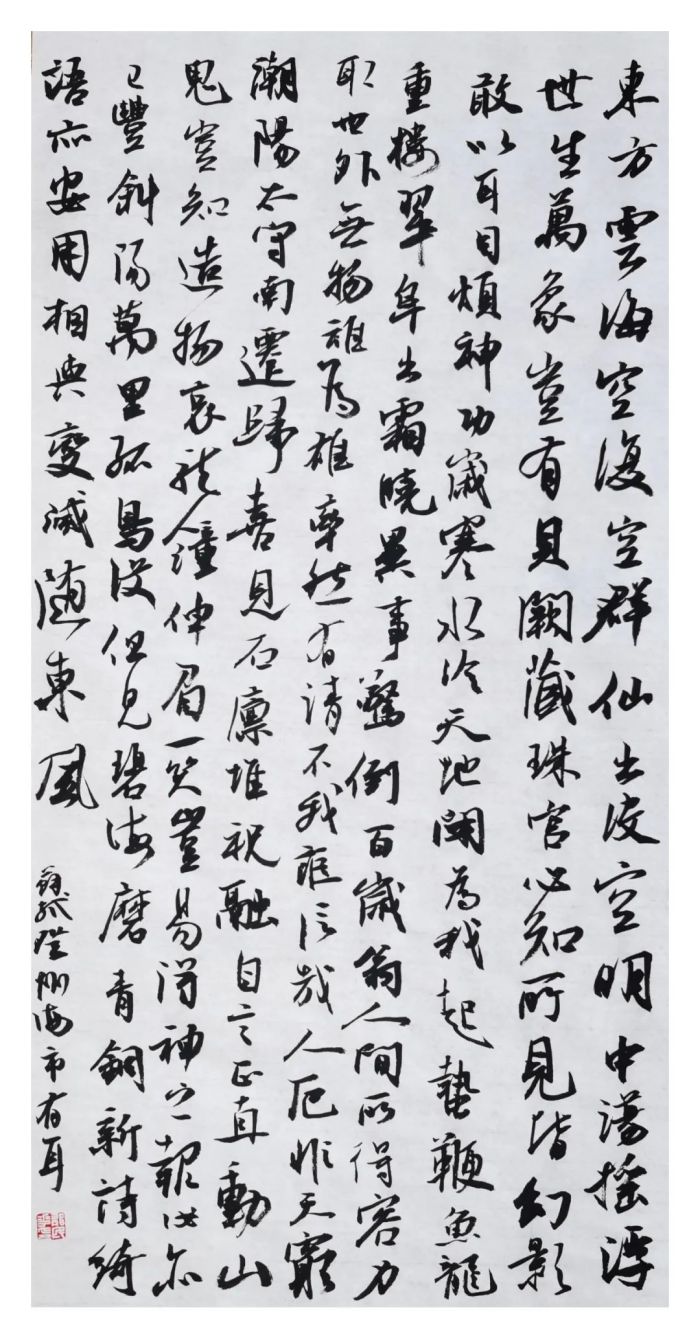 東方雲海空復空群仙出沒空明中蕩搖浮
世生萬象豈有貝闕藏珠宮心知所見皆幻影
敢以耳目煩神功歲寒水冷天地閉為我起蟄鞭魚龍
重樓翠阜出霜曉異事驚倒百歲翁人間所得容力
取世外無物誰為雄率然有請不我拒信哉人厄非天窮
潮陽太守南遷歸喜見石廩堆祝融自言正直動山
鬼豈知造物哀龍鍾伸眉一笑豈易得神之報汝亦
已豐斜陽萬里孤鳥沒但見碧海磨青銅新詩綺
語亦安用相與變滅隨東風
蘇軾登州海市有耳